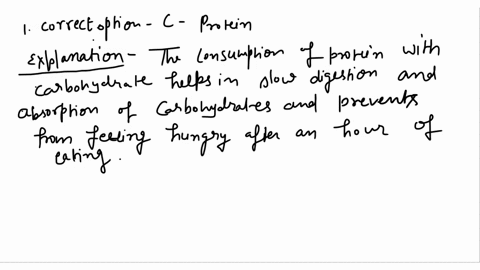 1. correct option - C - Protein
Explanation - The consumption of protein with
carbohydrate helps in slow digestion and
absorption of carbohydrates and prevents
from feeling hungry after an hour of
eating.